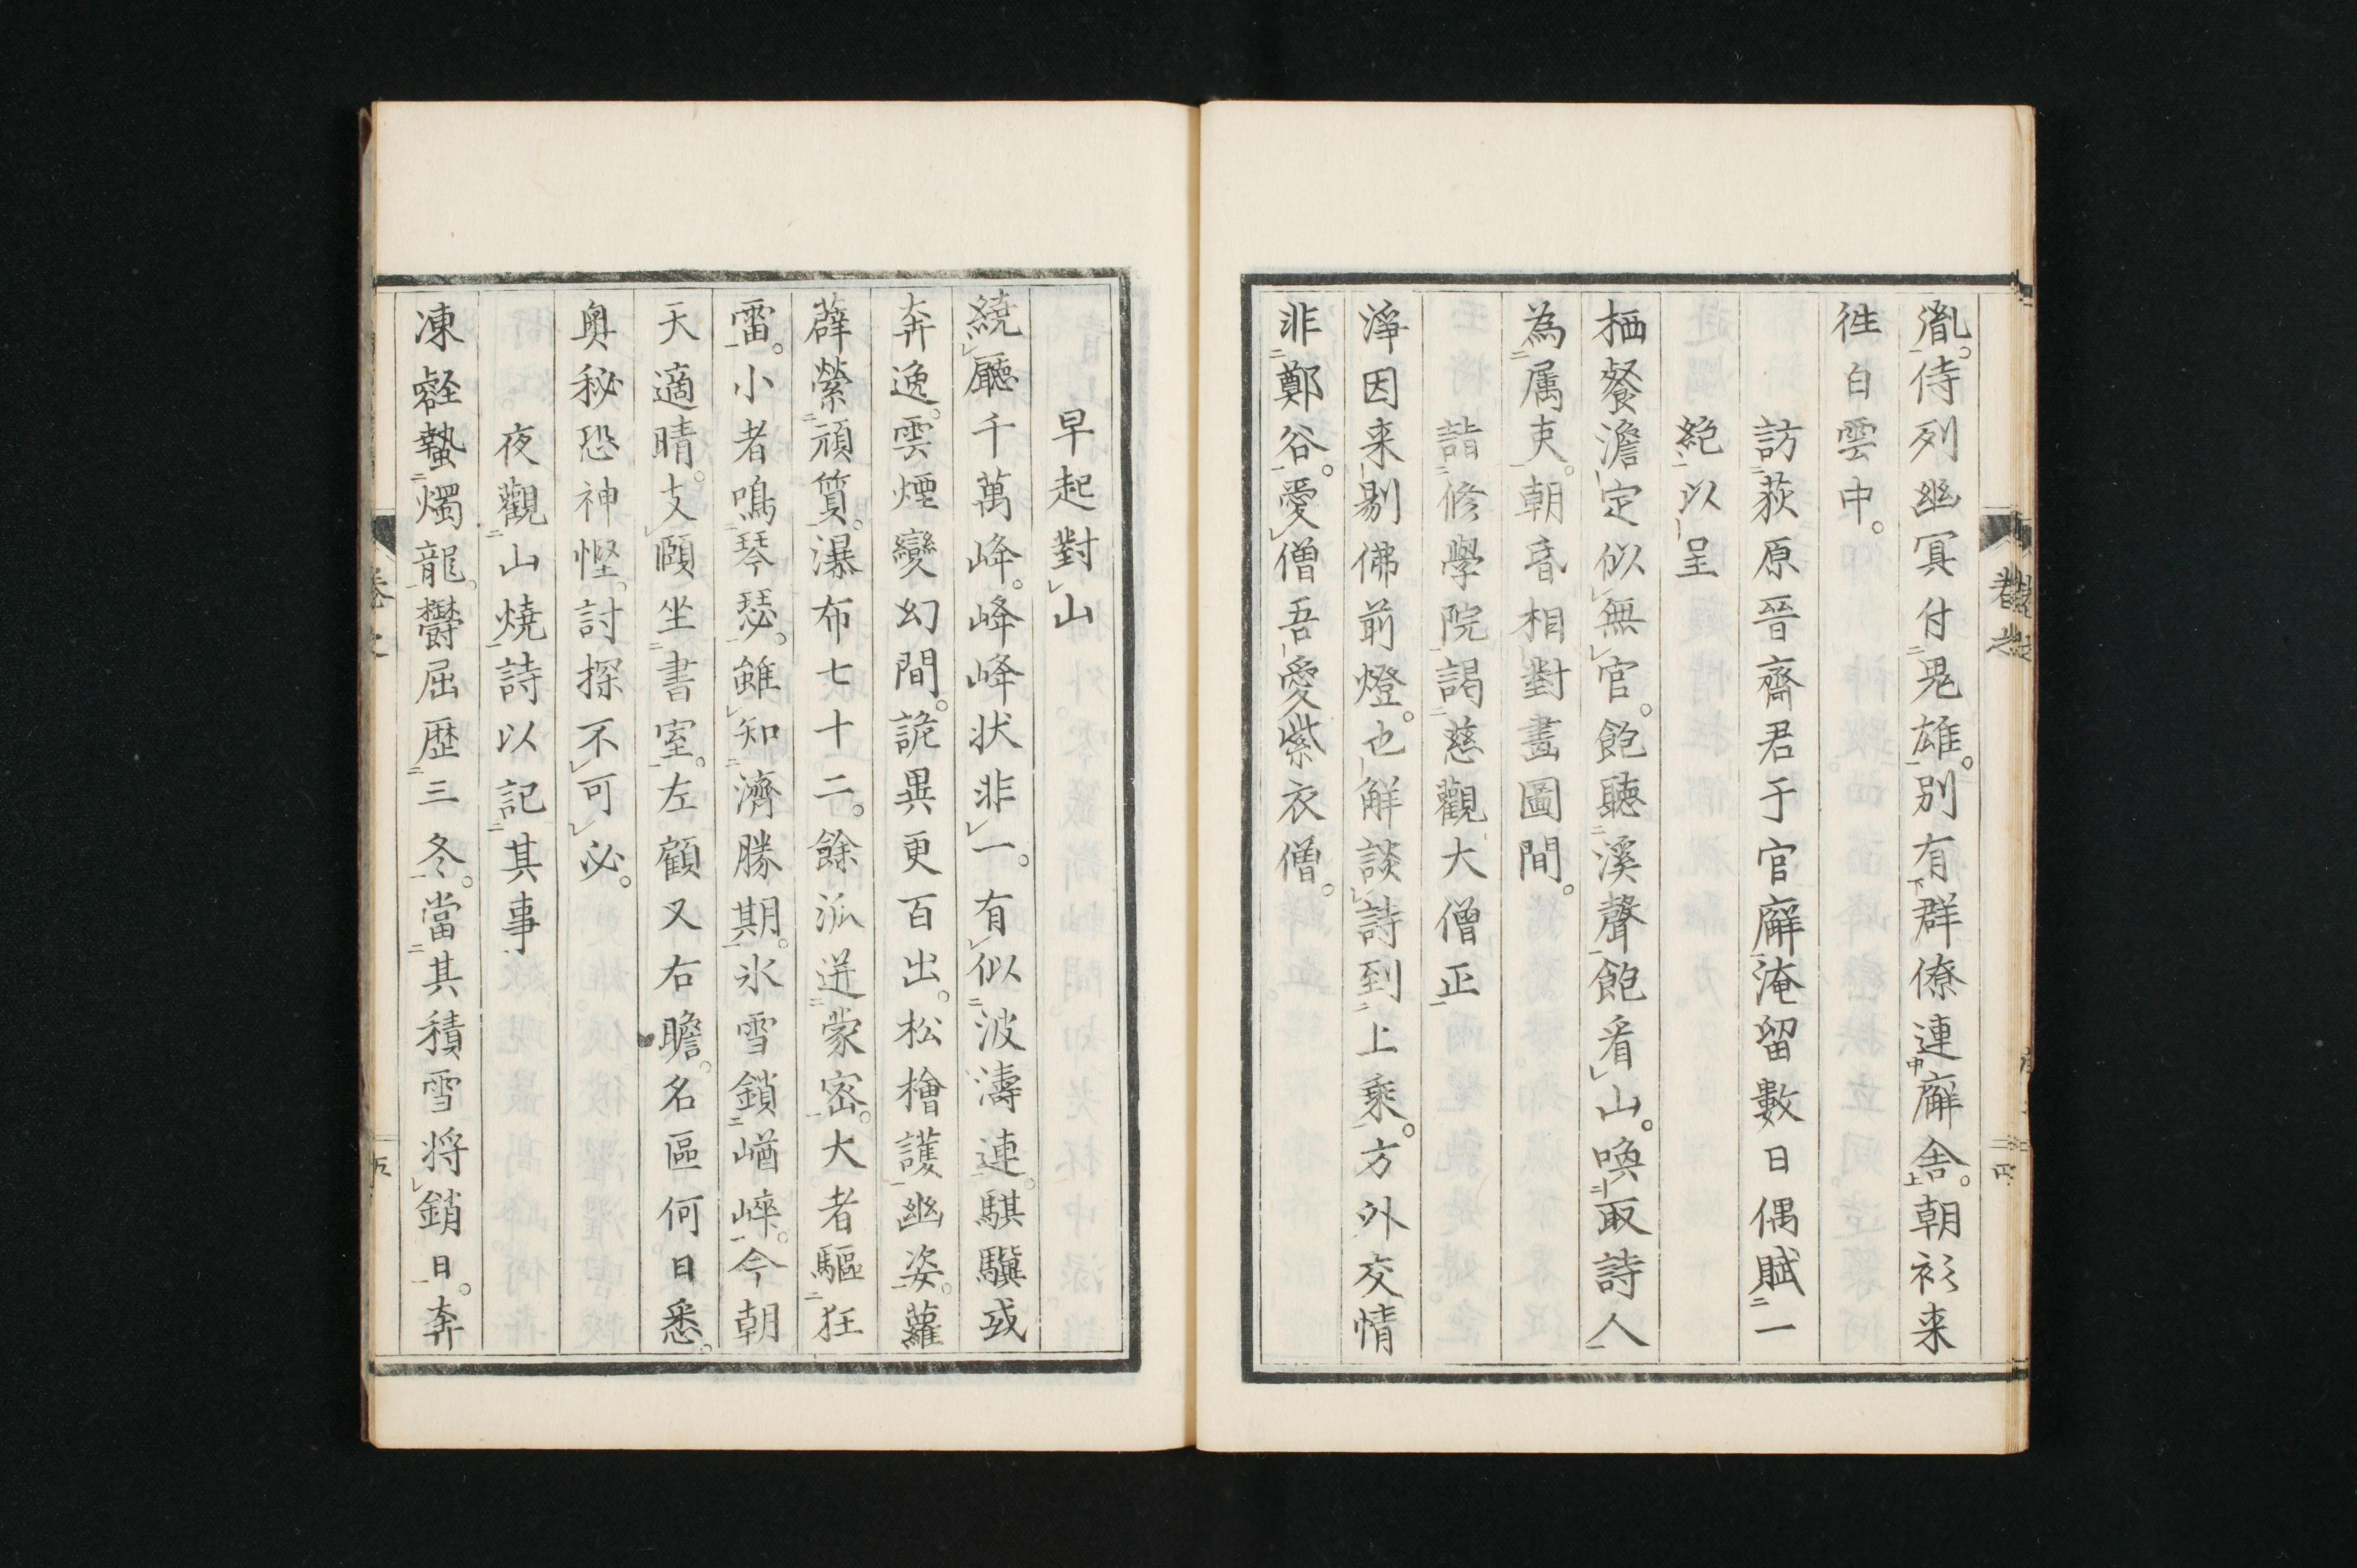 胤。侍列幽冥付鬼雄。別有群僚連廨舎。朝衫来
徃白雲中。
訪荻原晉齋君于官廨淹留數日偶賦一
絶以呈
栖餐澹定似無官。飽聽溪聲飽看山。喚取詩人
為属吏。朝昏相對畫圖間。
詣修學院謁慈觀大僧正
淨因来剔佛前燈。也解談詩到上乘。方外交情
非鄭谷。愛僧吾愛紫衣僧。
早起對山
繞廳千萬峰。峰峰状非一。有似波濤連。騏驥或
奔逸。雲煙變幻間。詭異更百出。松檜護幽姿。蘿
薜縈頑質。瀑布七十二。餘派迸蒙密。大者驅狂
雷。小者鳴琴瑟。雖知濟勝期。氷雪鎖崷崪。今朝
天適晴。支頤坐書室。左顧又右瞻。名區何日悉。
奥秘恐神慳。討探不可必。
夜觀山燒詩以記其事
凍壑蟄燭龍。欝屈歴三冬。當其積雪将銷日。奔